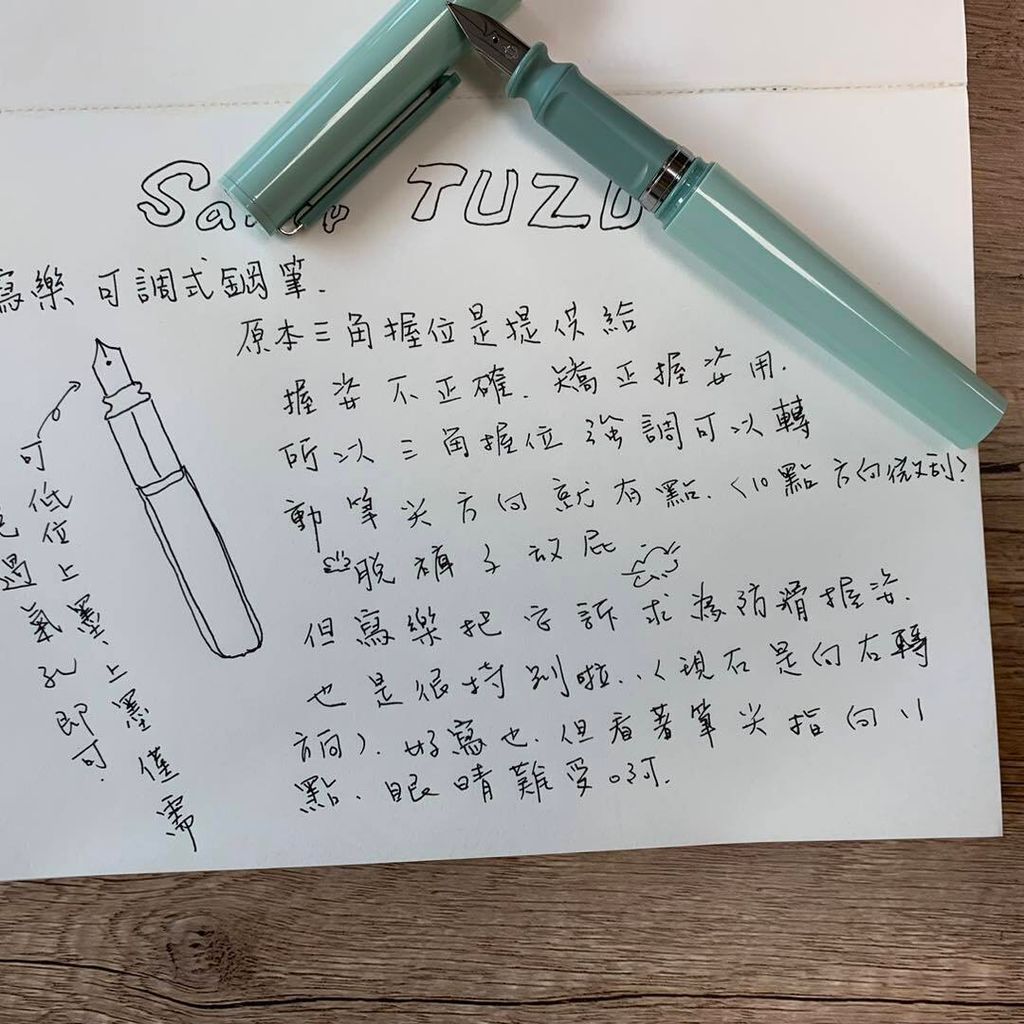 TUZU
寫樂可調式鋼筆.
原本三角握位是提供給
握姿不正確.矯正握姿用.
所以三角握位強調可以轉
動筆尖方向就有點.(10點方向微刮?
脫褲子放屁
但寫樂把它訴求為防滑握姿.
也是很特別啦..(現在是向右轉
方向).好寫也.但看著筆尖指向11
點.眼睛難受呵.
可低位上墨.上墨僅需
過氣孔即可.